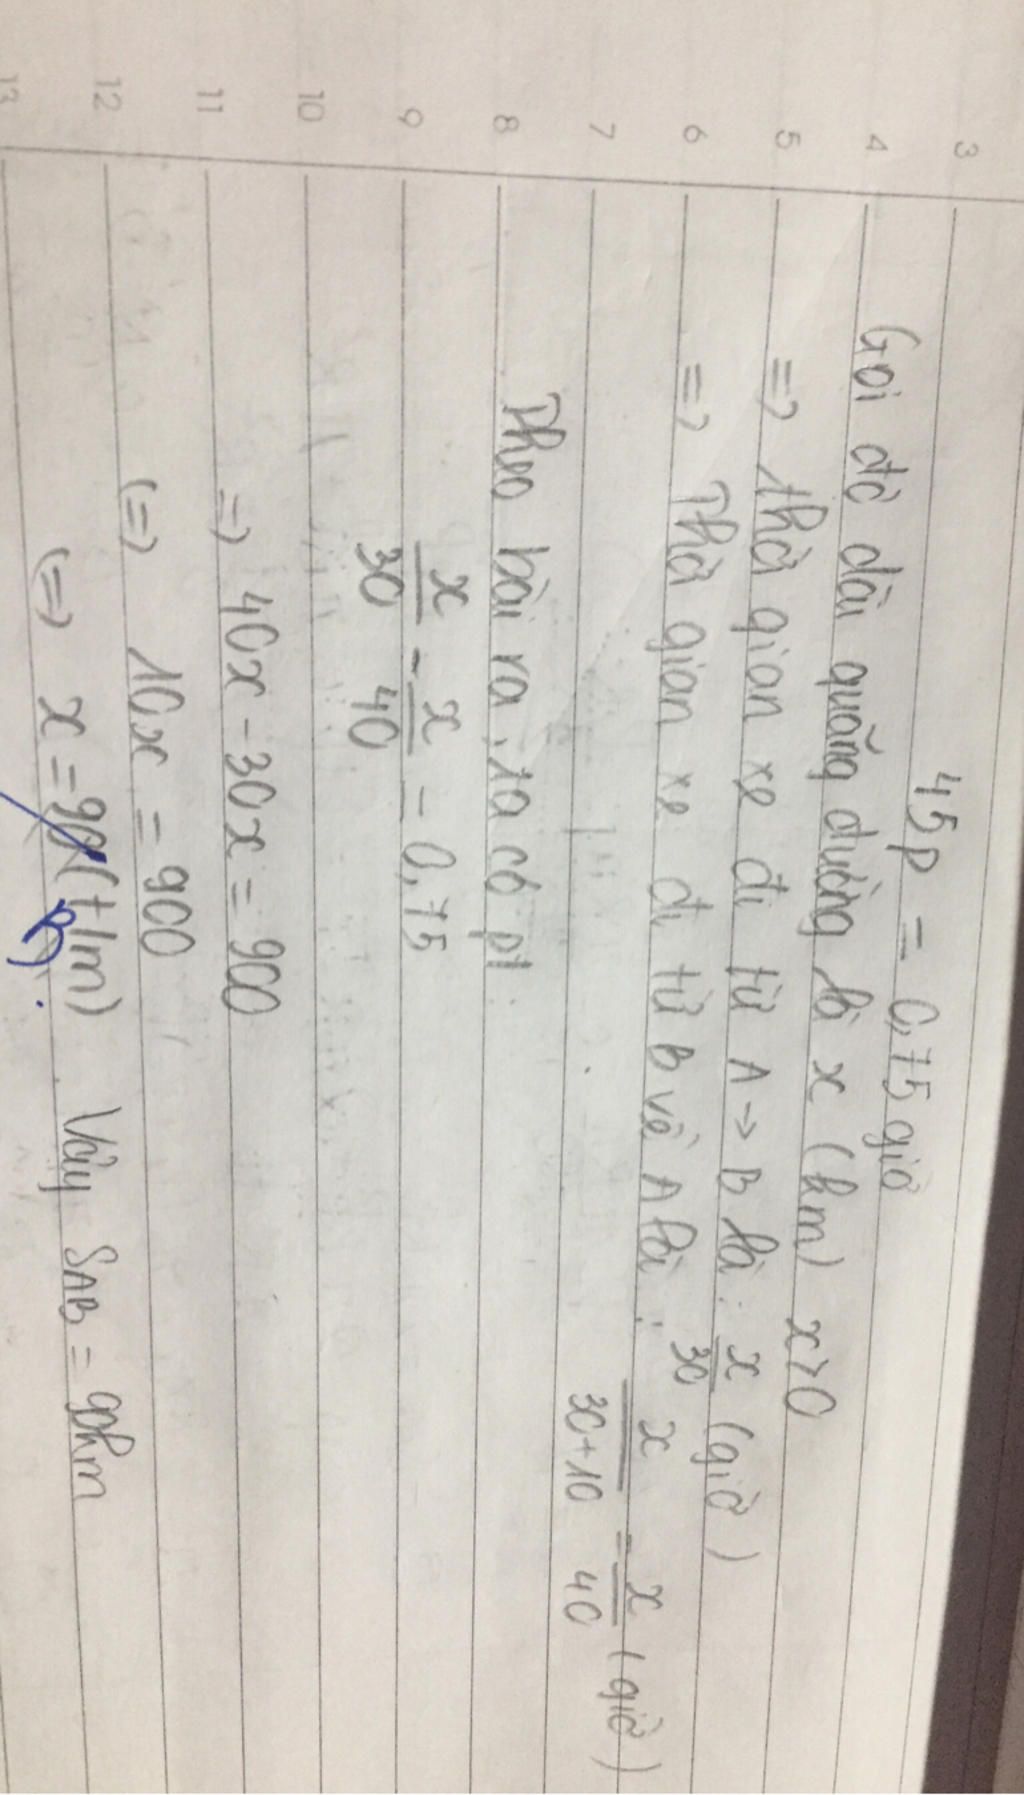 3
45p = 0,75 giờ
4 Gọi độ dài quãng đường là x (km) x>0
5 => thời gian xe đi từ A -> B là : x/30 (giờ)
6 => Thời gian xe đi từ B về A là : x/30+10 = x/40 (giờ)
7
8 Theo bài ra, ta có pt :
9 x/30 - x/40 = 0,75
10
11 => 40x - 30x = 900
12 (=) 10x = 900
13 (=) x = 90 (km) Vậy SAB = 90km